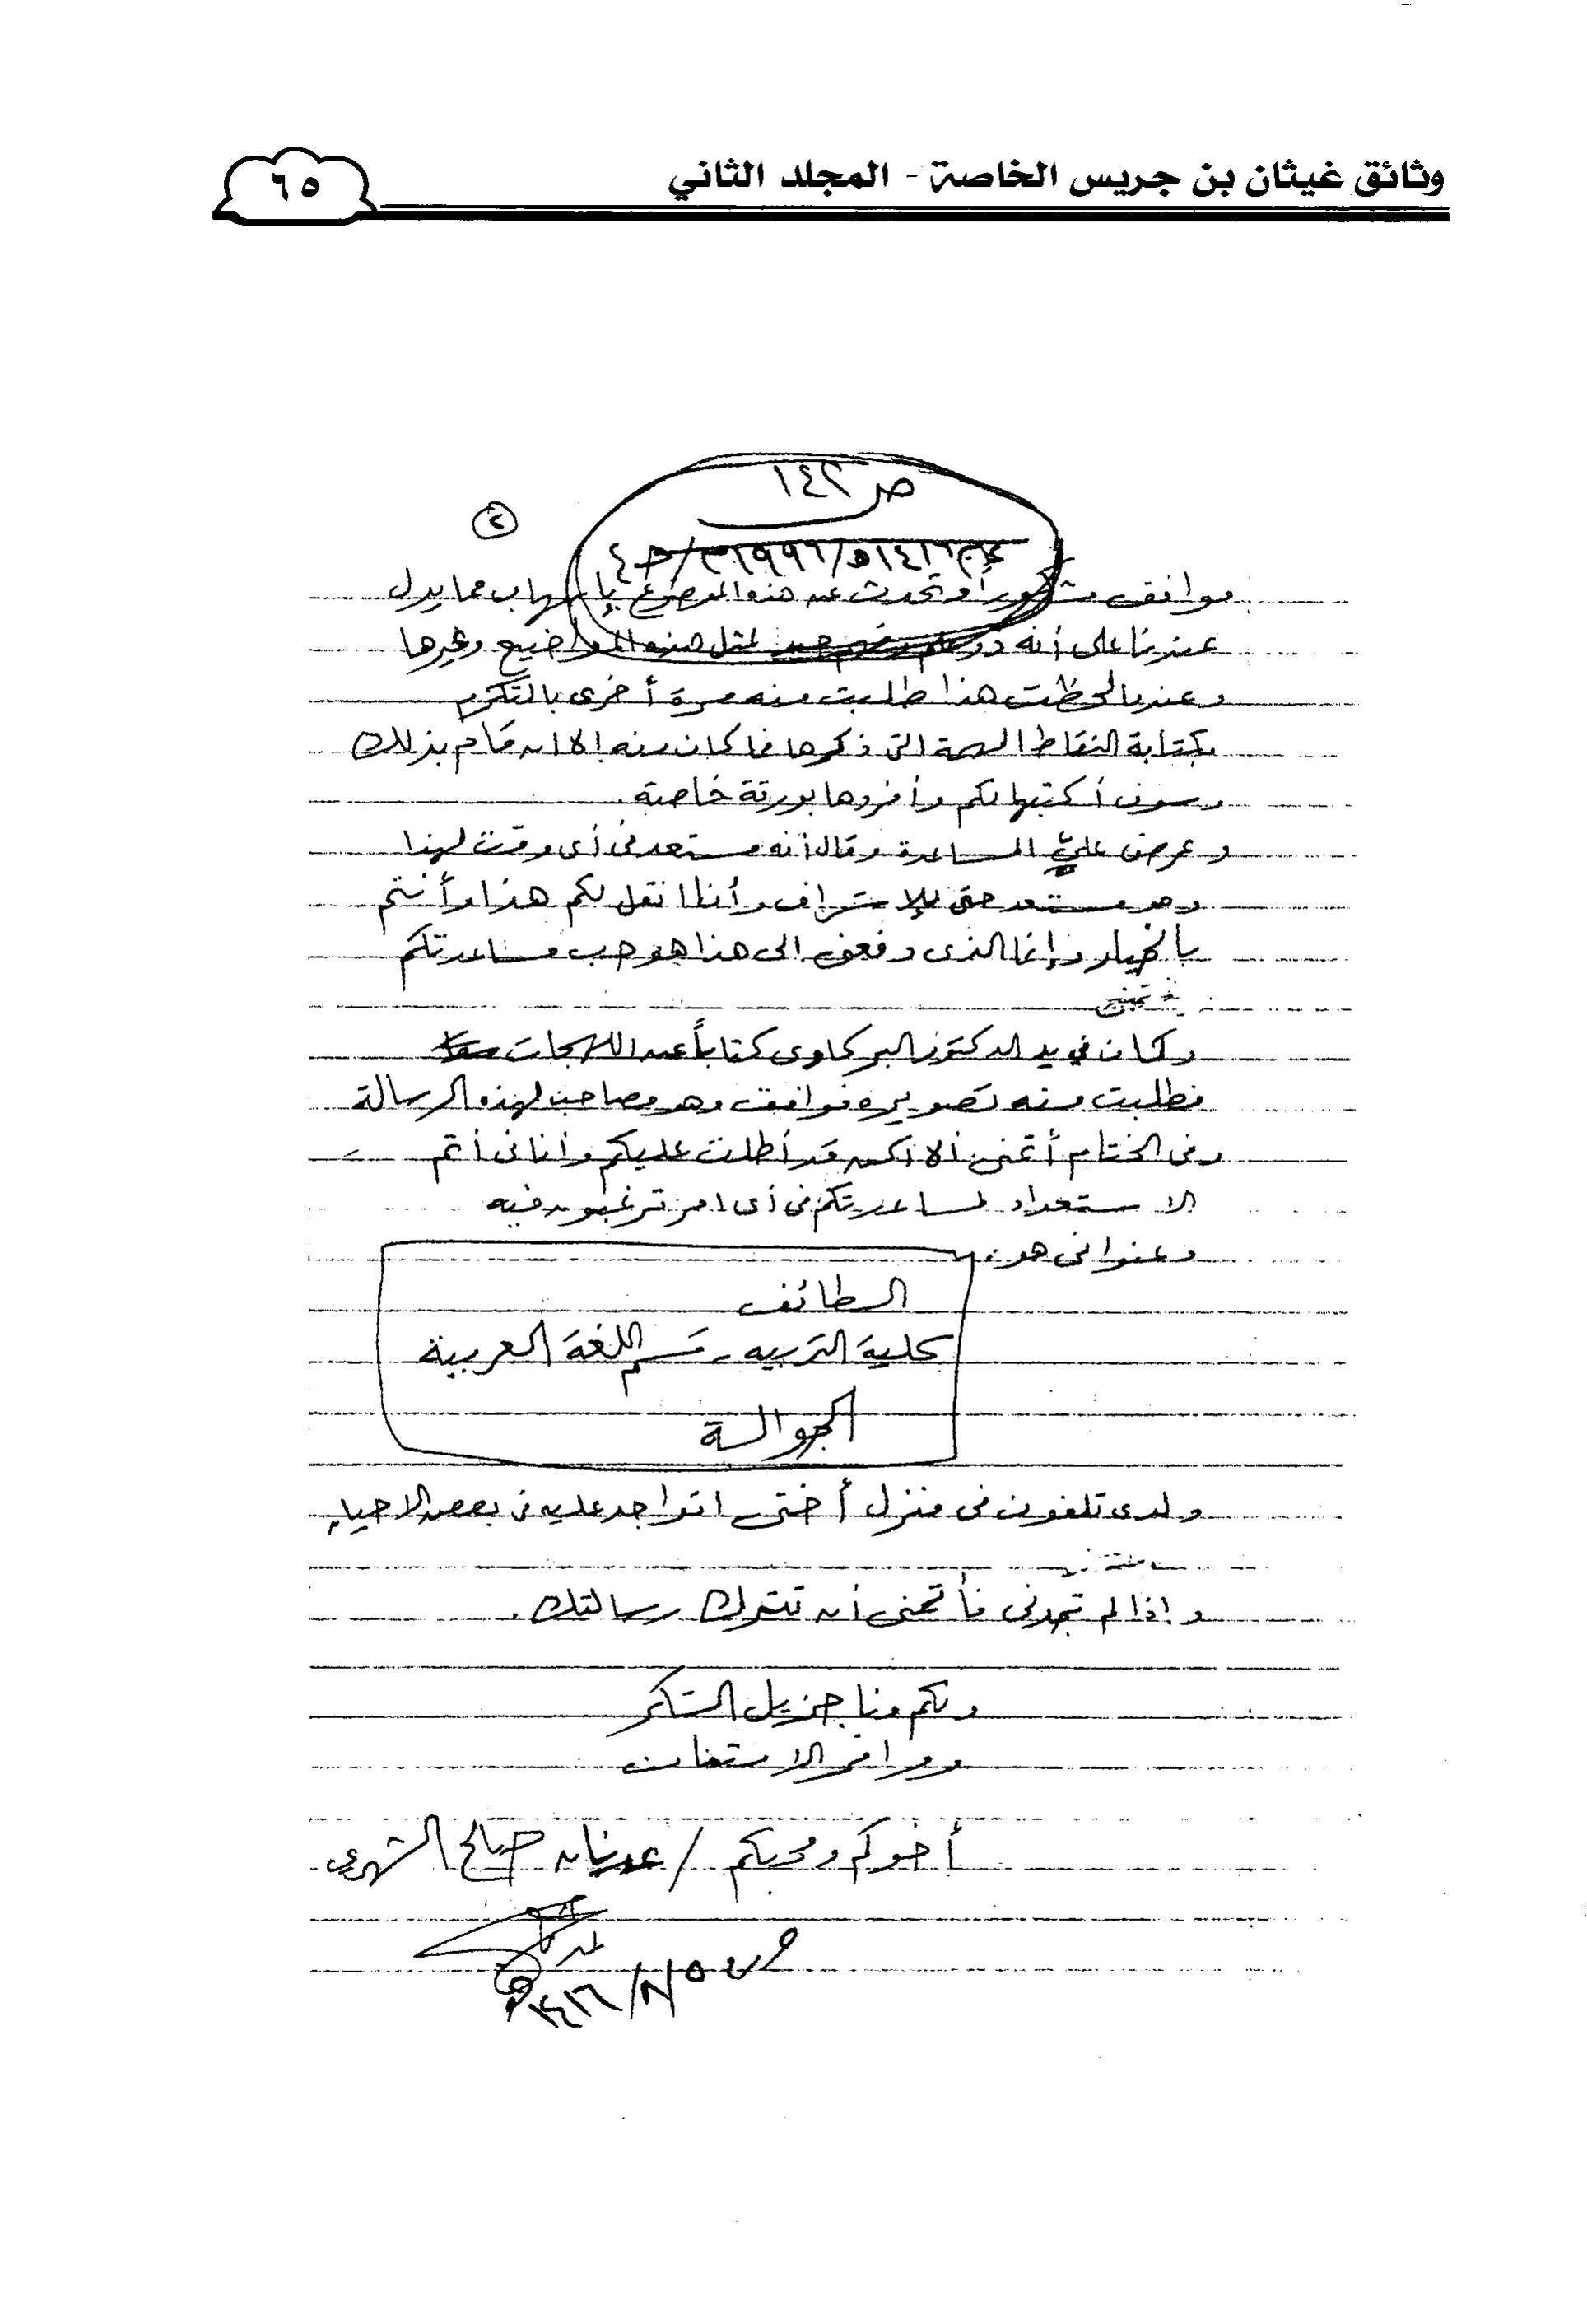 وثائق غيثان بن جريس الخاصة - المجلد الثاني
٦٥
ص ١٤٢
٢
١٤١٦هـ/١٩٩٦م/ج٤
فوافق مشكوراً وتحدث عن هذا الموضوع بإسهاب مما يدل
عندنا على أنه ذو علم وفهم جيد لمثل هذه المواضيع وغيرها
وعندما لحظت هذا طلبت منه مرة أخرى بالتكرم
بكتابة النقاط المهمة التي ذكرها فما كان منه إلا ان قام بذلك
وسوف أكتبها لكم وأفردها بورقة خاصة.
وعرض عليّ المساعدة وقال أنه مستعد في أي وقت لهذا
وهو مستعد حتى للإشراف وأنا انقل لكم هذا وأنتم
بالخيار وإنما الذي دفعني الى هذا هو حب مساعدتكم
وكان في يد الدكتور البركاوى كتاباً عن اللهجات
فطلبت منه تصويره فوافق وهو مصاحب لهذه الرسالة
وفي الختام أتمنى ألا اكون قد أطلت عليكم وأنا في أتم
الاستعداد لمساعدتكم في أى امر ترغبون فيه
وعنواني هو:
الطائف
كلية التربيه - قسم اللغة العربية
الجوالة
ولدى تلفون في منزل أختى اتواجد عليه في بعض الاحيان
وإذا لم تجدني فأتمنى أن تترك رسالتك.
ولكم منا جزيل الشكر
ووافر الامتنان
أخوكم ومحبكم / عدنان صالح الشهري
١٤١٦هـ